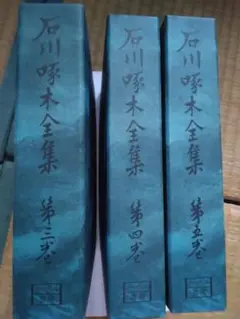 石川啄木全集 第三巻
石川啄木全集 第四巻
石川啄木全集 第五巻